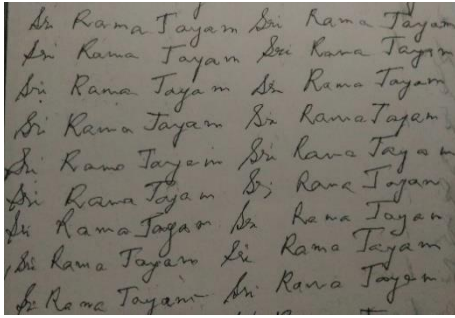 Sri Rama Jayam Sri Rama Jayam
Sri Rama Jayam Sri Rama Jayam
Sri Rama Jayam Sri Rama Jayam
Sri Rama Jayam Sri Rama Jayam
Sri Rama Jayam Sri Rama Jayam
Sri Rama Jayam Sri Rama Jayam
Sri Rama Jayam Sri Rama Jayam
Sri Rama Jayam Sri Rama Jayam
Sri Rama Jayam Sri Rama Jayam